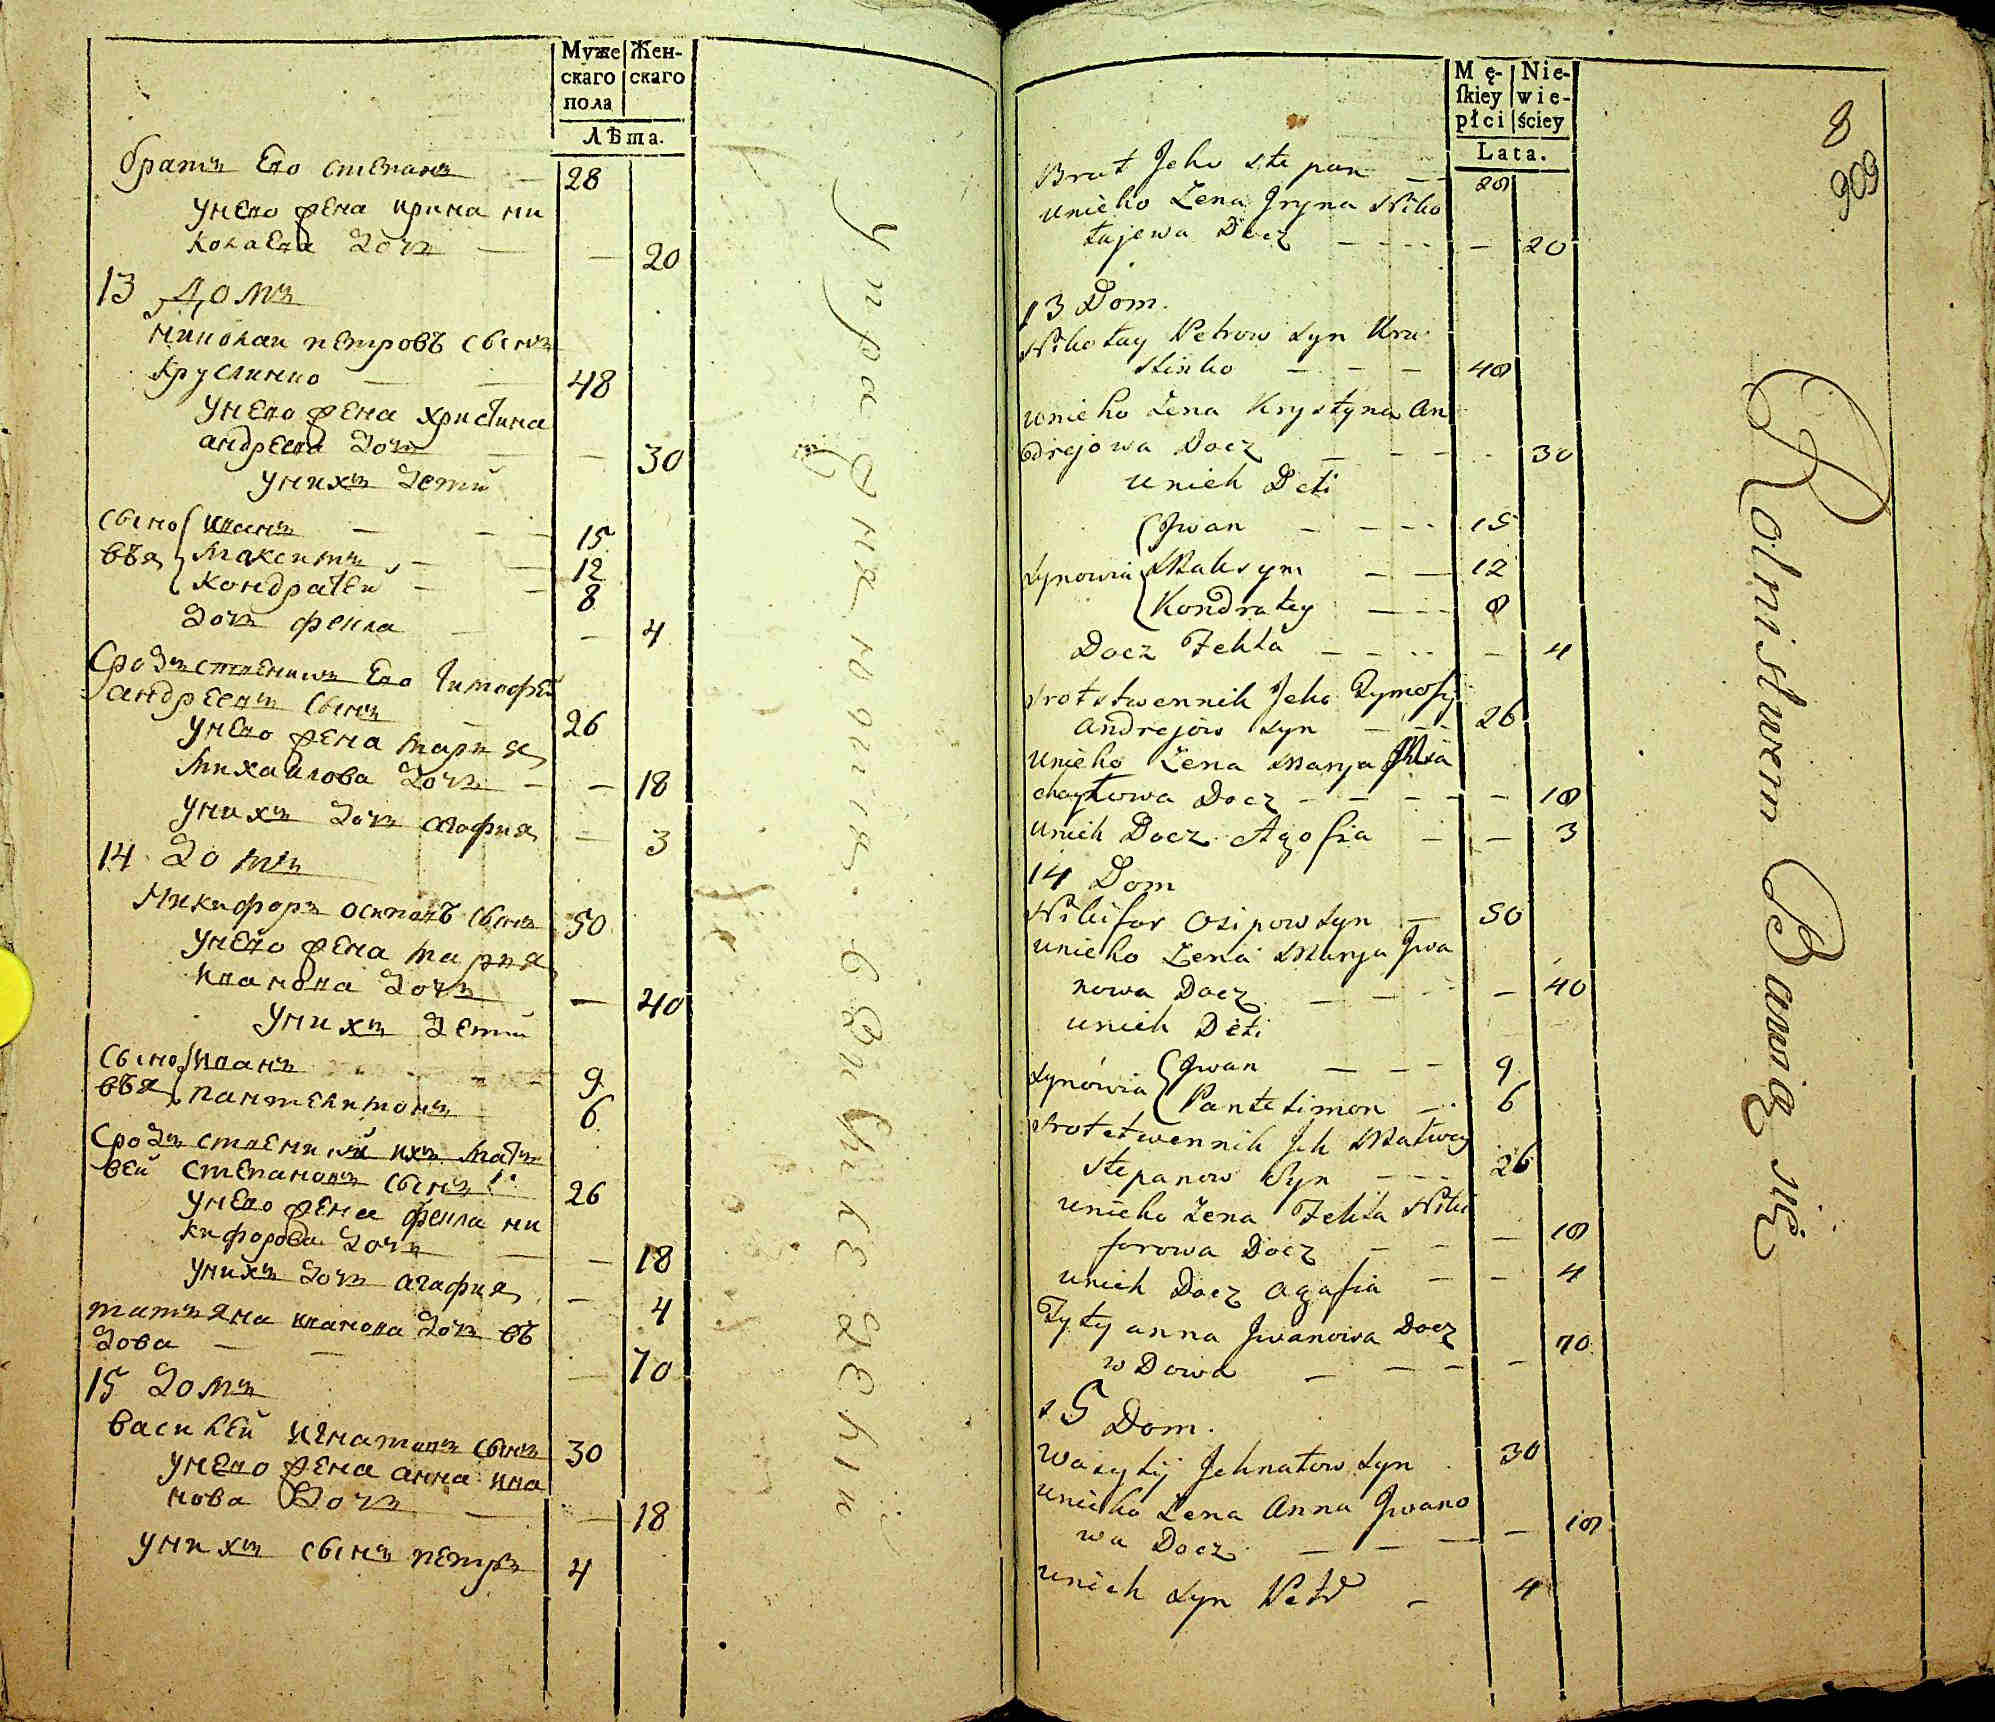 Муже Жен-
скаго скаго
пола
Лѣта.
братъ Его степанъ — 28
унего жена ирина ни
колаева дочь — — 20
13 домъ
николаи петровъ сынъ
Круслинко — — 48
унего жена христина
андреева дочь — — 30
унихъ дети
сыно иванъ — — 15
въя максимъ — — 12
кондратеи — — 8
дочь фекла — — 4
Сродственникъ Его тимофей
андреевъ сынъ — 26
унего жена мария
михаилова дочь — — 18
унихъ дочь агофия — 3
14 домъ
никифоръ осиповъ сынъ 50
унего жена мария
иванова дочь — 40
унихъ дети
сыно иванъ 9
въя пантелимонъ 6
Сродственникъ ихъ мат
вей степановъ сынъ 26
унего жена фекла ни
кифорова дочь — — 18
унихъ дочь агафия — 4
татьяна иванова дочь въ
дова — — — 70
15 домъ
василей игнатовъ сынъ 30
унего жена анна ива
нова дочь — — 18
унихъ сынъ петръ 4
упражняются в
хлебопашестве
Mę- Nie-
ſkiey wie-
płci ściey
Lata.
8
909
Brat Jeho Stepan — — 28
unieho Żena Jryna Niko
łajewa Docz — — — — 20
13 Dom.
Nikołay Petrow Syn Kru
slinko — — — 48
unieho żena Krystyna An
drejowa Docz — — — — 30
unich Deti
Jwan — — — 15
Synowia Maksym — — 12
Kondratey — — — 8
Docz Fekła — — — — 4
Srotstwennik Jeho Tymofij
Andrejow Syn — — — 26
unieho Żena Marya Mi
chayłowa Docz — — — — — 18
unich Docz Agofia — — 3
14 Dom
Nikifor Osipow Syn — 50
unieho Żena Marya Jwa
nowa Docz — — — — 40
unich Deti
Synowia Jwan — — — 9
Pantelimon — 6
Srotstwennik Jch Matwey
Stepanow Syn — — — 26
unieho żena Fekła Niki
forowa Docz — — — 18
unich Docz Agafia — — 4
Tytyanna Jwanowa Docz
wDowa — — — — — 70
15 Dom.
Wasylij Jehnatow Syn 30
unieho Żena Anna Jwano
wa Docz — — — — 18
unich Syn Petr — 4
Rolnistwem Bawią się